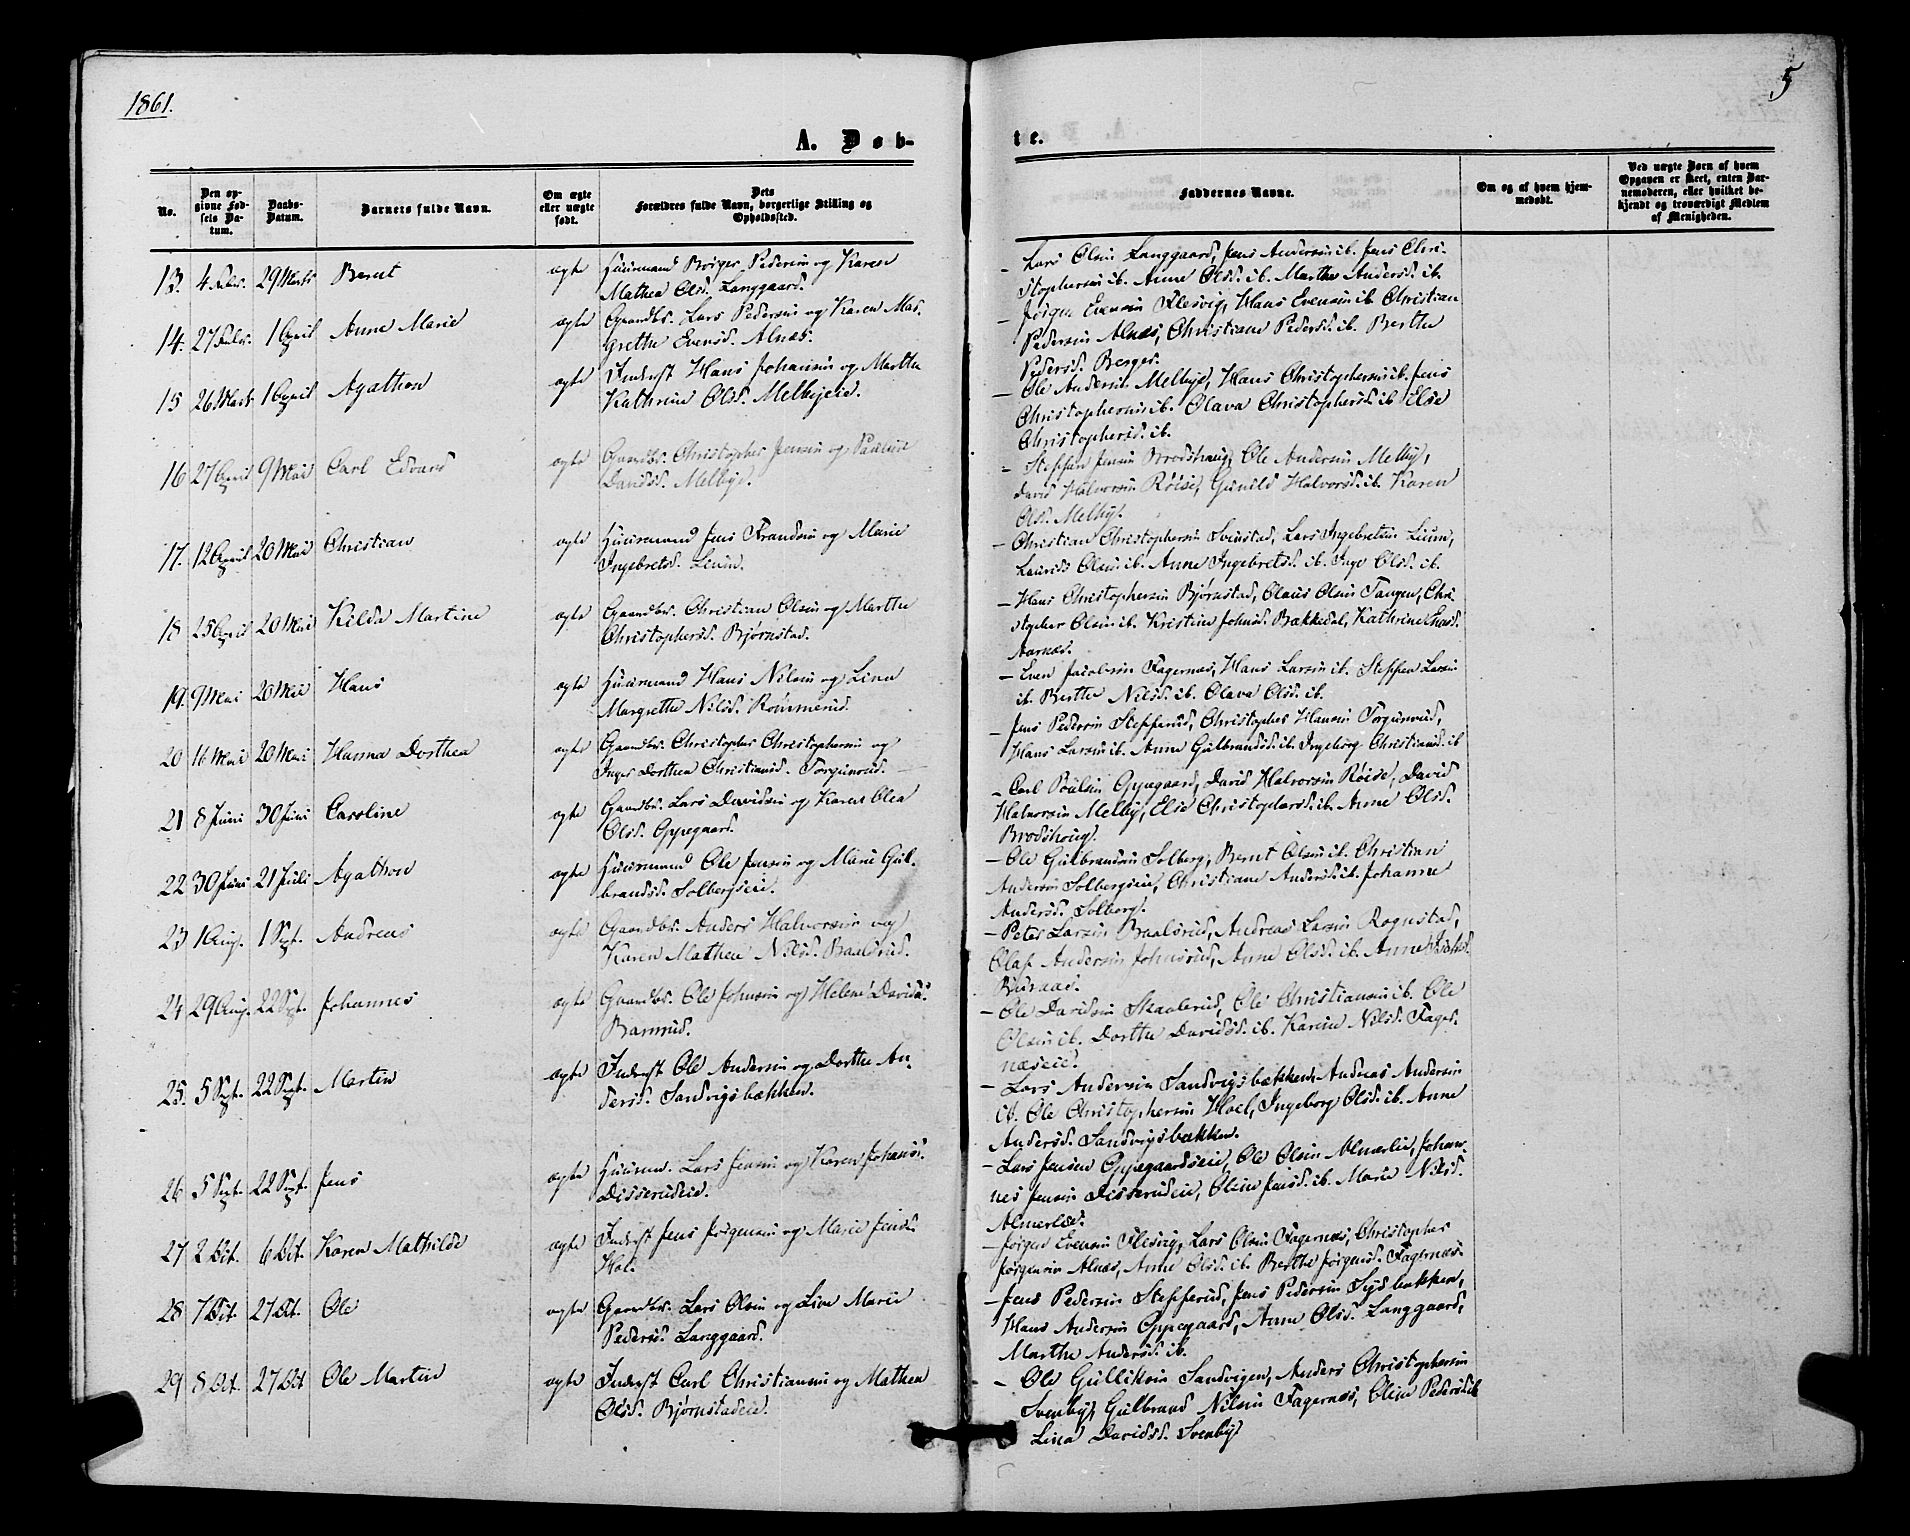 1861.
5
A. Døb-
te.
No.
Den opgivne Fødsels Datum.
Daabs-Datum.
Barnets fulde Navn.
Om ægte eller uægte født.
Dets Forældres fulde Navn, borgerlige Stilling og Opholdssted.
Faddernes Navne.
Om og af hvem hjemmedøbt.
Ved uægte Børn af hvem Opgaven er skeet, enten Barnemoderen, eller hvilket bekjendt og troværdigt Medlem af Menigheden.
13. 4 Febr. 29 Marts Bernt ægte Huusmand Børger Pedersen og Karen
Mathea Olsd. Langgaard.
– Lars Olsen Langgaard, Jens Andersen ib. Jens Chri-
stophersen ib. Anne Olsd. ib. Marthe Andersd. ib.
14. 27 Febr. 1 April Anne Marie ægte Gaardbr. Lars Pedersen og Karen Mar-
grethe Evensd. Alnæs.
– Jørgen Evensen Flesvig, Hans Evensen ib. Christian
Pedersen Alnæs, Christiane Pedersd. ib. Berthe
Pedersd. Berger.
15 26 Marts 1 April Agathon ægte Inderst Hans Johansen og Marthe
Kathrine Olsd. Melbyeie.
– Ole Andersen Melbye, Hans Christophersen ib. Jens
Christophersen ib. Olava Christophersd. ib. Else
Christophersd. ib.
16 27 April 9 Mai Carl Edvard ægte Gaardbr. Christopher Jensen og Pauline
Davidsd. Melbye.
– Steffen Jensen Brodshaug, Ole Andersen Melby,
David Halvorsen Røise, Gunild Halvorsd. ib. Karen
Olsd. Melby.
17. 12 April 20 Mai Christian ægte Huusmand Jens Frandsen og Marie
Ingebretsd. Lium.
– Christian Christophersen Svenstad, Lars Ingebretsen Lium,
Laurids Olsen ib. Anne Ingebretsd. ib. Inge Olsd. ib.
18 25 April 20 Mai Kilda Martine ægte Gaardbr. Christian Olsen og Marthe
Christophersd. Bjørnstad.
– Hans Christophersen Bjørnstad, Olaus Olsen Tangen, Chri-
stopher Olsen ib. Kristine Johnsd. Bakkedal, Kathrine
Aarnæs.
19. 9 Mai 20 Mai Hans ægte Huusmand Hans Nilsen og Lina
Margrethe Nilsd. Rømmerud.
– Even Jacobsen Fagernæs, Hans Larsen ib. Steffen Larsen
ib. Berthe Nilsd. ib. Olava Olsd. ib.
20 16 Mai 20 Mai Hanna Dorthea ægte Gaardbr. Christopher Christophersen og
Inger Dorthea Christiansd. Torgunrud.
– Jens Pedersen Stefferud, Christopher Hansen Torgunrud,
Hans Larsen ib. Anne Gulbrandsd. ib. Ingeborg Christiansd. ib
21 8 Juni 30 Juni Caroline ægte Gaardbr. Lars Davidsen og Karen Olea
Olsd. Oppegaard.
– Carl Poulsen Oppegaard, David Halvorsen Røise, David
Halvorsen Melby, Else Christophersd. ib. Anne Olsd.
Brodshoug.
22 30 Juni 21 Juli Agathon ægte Huusmand Ole Jensen og Marie Gul-
brandsd. Solbergseie.
– Ole Gulbrandsen Solberg, Bernt Olsen ib. Christian
Andersen Solbergseie, Christiane Andersd. ib. Johanne
Andersd. Solberg.
23 1 Aug. 1 Sept. Andreas ægte Gaardbr. Anders Halvorsen og
Karen Mathea Nilsd. Baalsrud.
– Peter Larsen Baalsrud, Andreas Larsen Rognstad,
Olaf Andersen Johnsrud, Anne Olsd. ib. Anne
24 29 Aug. 22 Sept. Johannes ægte Gaardbr. Ole Johnsen og Helene Davidsd.
Barnrud.
– Ole Davidsen Skaalerud, Ole Christiansen ib. Ole
Olsen ib. Dorthe Davidsd. ib. Karine Nilsd. Fager-
næseie.
25. 5 Sept. 22 Sept. Martin ægte Inderst Ole Andersen og Dorthe An-
dersd. Sandvigsbækken.
– Lars Andersen Sandvigsbækken, Andreas Andersen
ib. Ole Christophersen Hoel, Ingeborg Olsd. ib. Anne
Andersd. Sandvigsbækken.
26 5 Sept. 22 Sept. Jens ægte Huusm. Lars Jensen og Karen Johansd.
Disserudeie.
– Lars Jensen Oppegaardseie, Ole Olsen Almerlie, Johan-
nes Jensen Disserudeie, Oline Jensd. ib. Marie Nilsd.
Almerlie.
27 2 Oct. 6 Oct. Karen Mathilde ægte Inderst Jens Jørgensen og Marie Jensd.
Hol.
– Jørgen Evensen Flesvig, Lars Olsen Fagernæs, Christopher
Jørgensen Alnæs, Anne Olsd. ib. Berthe Jørgensd. Fagernæs.
28 7 Oct. 27 Oct. Ole ægte Gaardbr. Lars Olsen og Live Marie
Pedersd. Langgaard.
– Jens Pedersen Stefferud, Jens Pedersen Sydbækken,
Hans Andersen Oppegaard, Anne Olsd. Langgaard,
Marthe Andersd. ib.
29 8 Oct. 27 Oct Ole Martin ægte Inderst Carl Christiansen og Mathea
Olsd. Bjørnstadeie.
– Ole Gulliksen Sandvigen, Anders Christophersen
Svenby, Gulbrand Nilsen Fagernæs, Oline Pedersd. ib
Lina Davidsd. Svenby